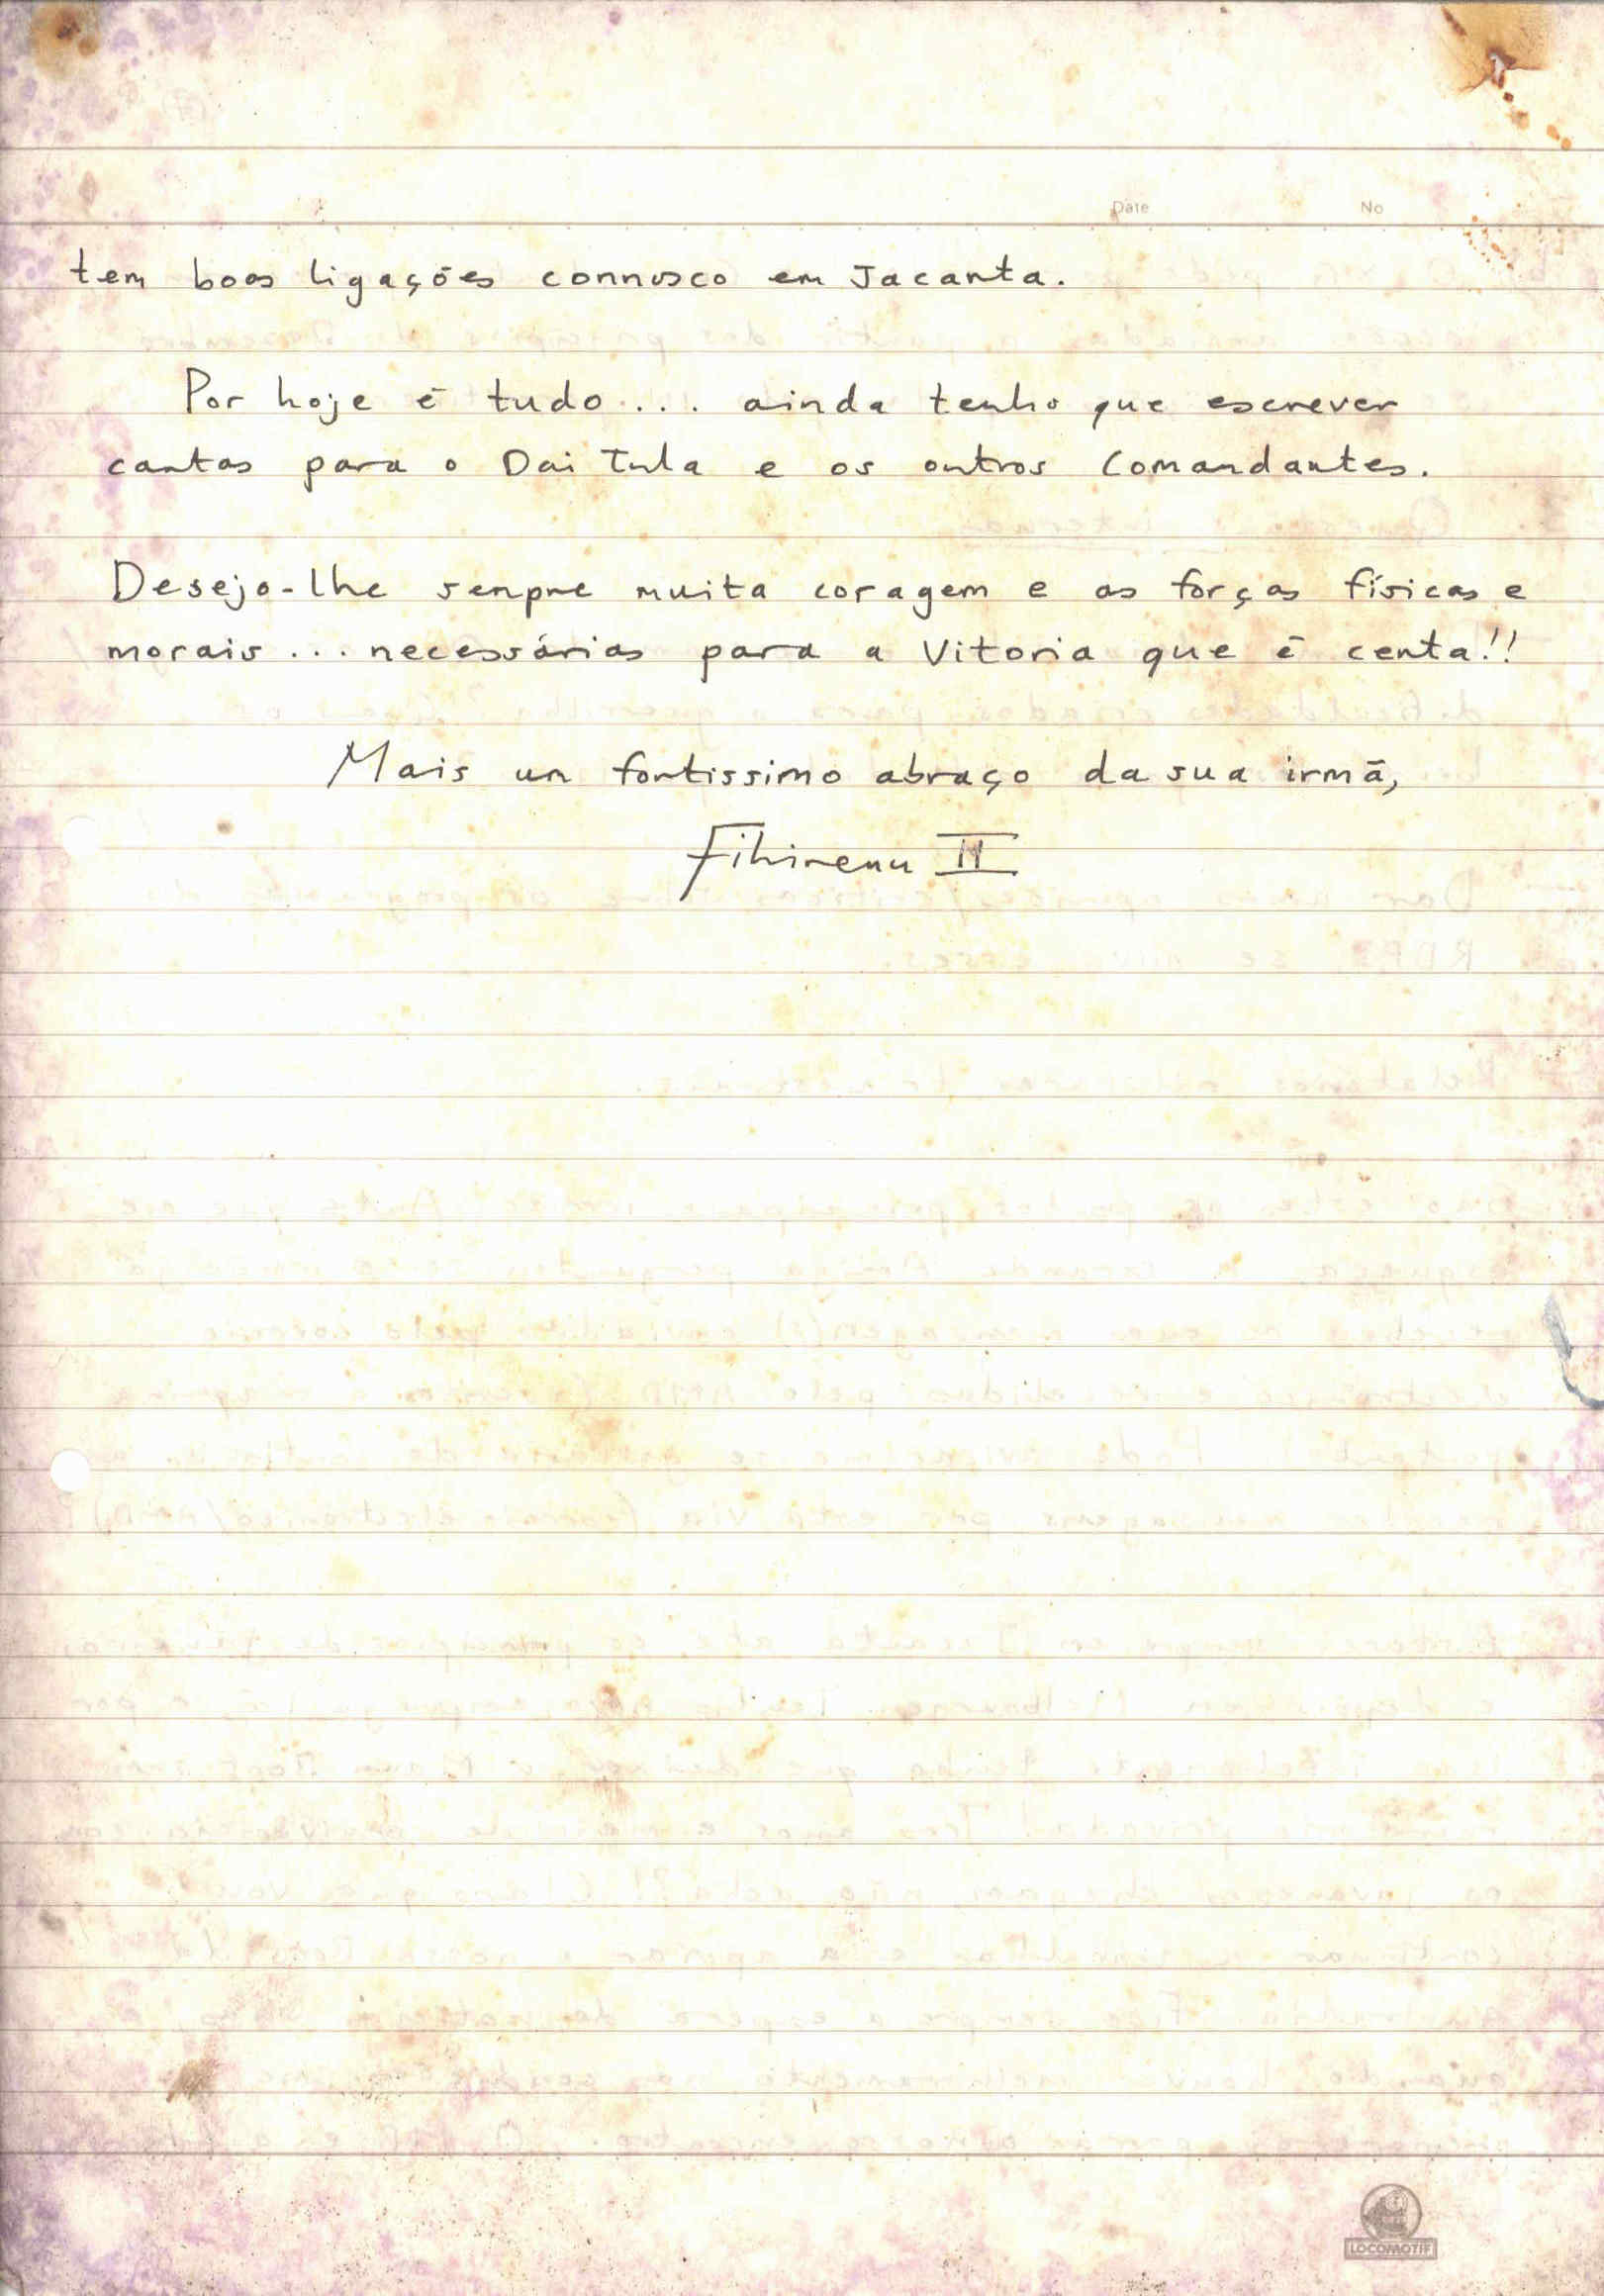 Date No
tem boas ligações connosco em Jacarta.
Por hoje é tudo... ainda tenho que escrever
cartas para o Dai Tula e os outros Comandantes.
Desejo-lhe sempre muita coragem e as forças físicas e
morais... necessárias para a Vitoria que é certa!!
Mais um fortissimo abraço da sua irmã,
II
LOCOMOTIF